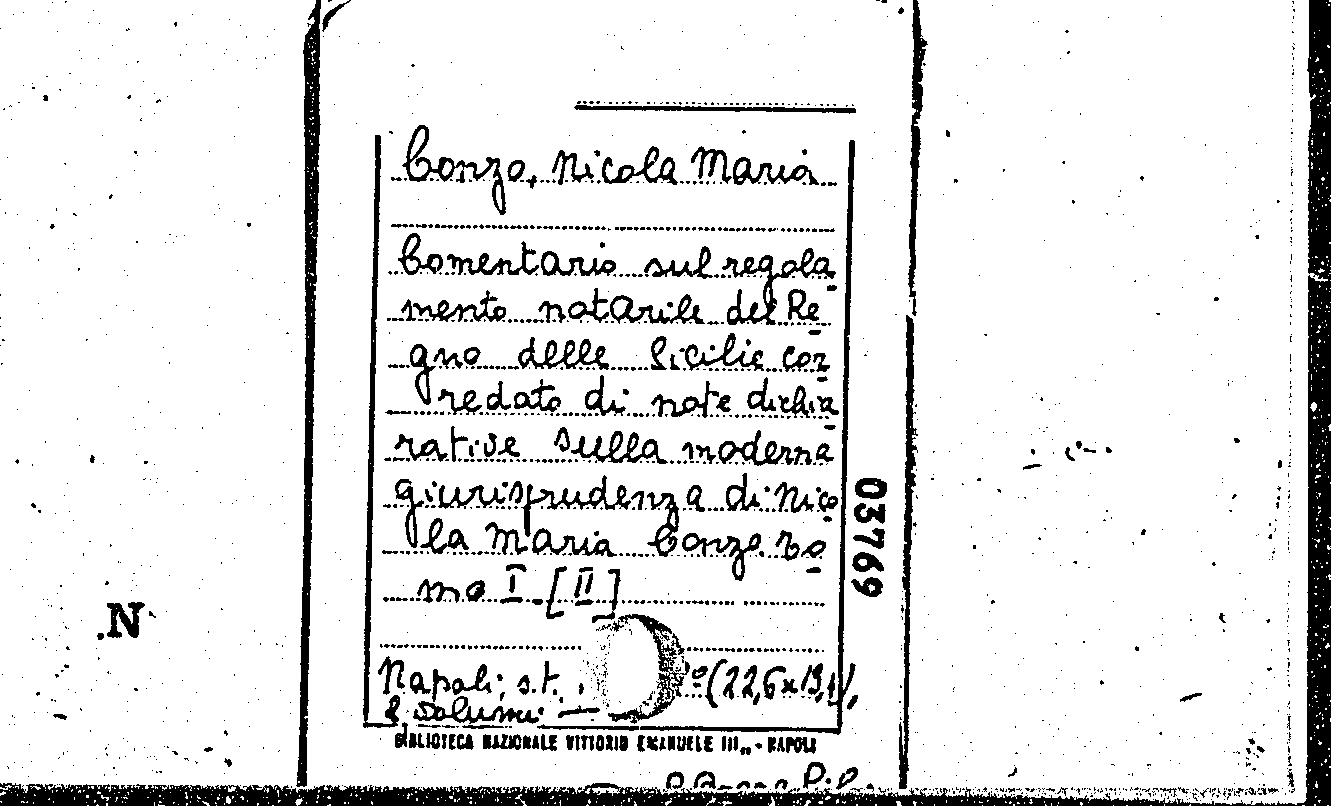 Conzo, Nicola Maria
Comentario sul regola-
mento notarile del Re-
gno delle Sicilie cor-
redato di note dichia-
rative sulla moderna
giurisprudenza di Nico-
la Maria Conzo. To-
mo I [II]
Napoli, s.t., (22,6x13,1),
2. volumi
BIBLIOTECA NAZIONALE VITTORIO EMANUELE III„ - NAPOLI
03769
.N